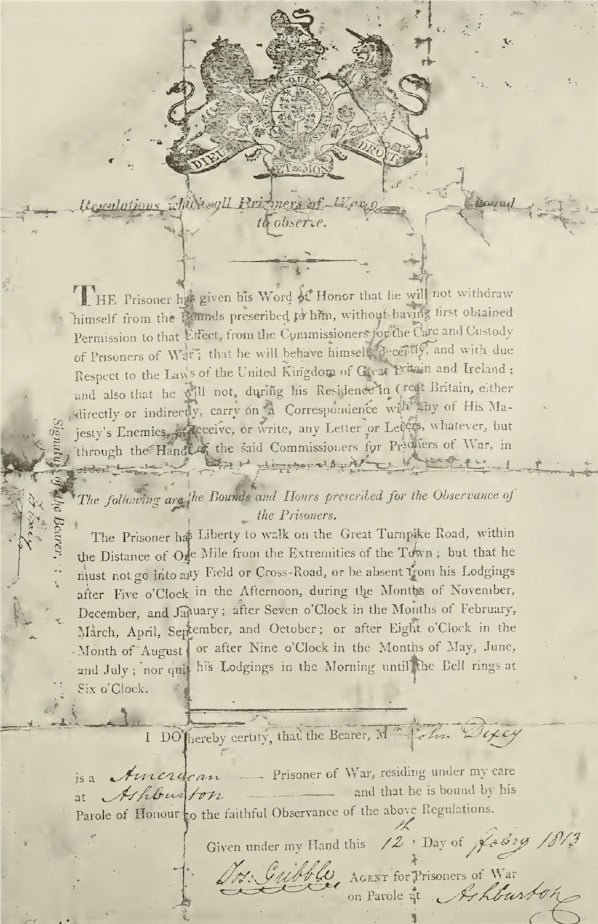 DIEU ET MON DROIT
Regulations which all Prisoners of War
bound
to observe.
THE Prisoner has given his Word of Honor that he will not withdraw
himself from the Bounds prescribed to him, without having first obtained
Permission to that Effect, from the Commissioners for the Care and Custody
of Prisoners of War; that he will behave himself decently, and with due
Respect to the Laws of the United Kingdom of Great Britain and Ireland;
and also that he will not, during his Residence in Great Britain, either
directly or indirectly, carry on a Correspondence with any of His Ma-
jesty's Enemies, receive, or write, any Letter or Letters, whatever, but
through the Hands of the said Commissioners for Prisoners of War, in
Signature of the Bearer.
The following are the Bounds and Hours prescribed for the Observance of
the Prisoners.
The Prisoner has Liberty to walk on the Great Turnpike Road, within
the Distance of One Mile from the Extremities of the Town; but that he
must not go into any Field or Cross-Road, or be absent from his Lodgings
after Five o'Clock in the Afternoon, during the Months of November,
December, and January; after Seven o'Clock in the Months of February,
March, April, September, and October; or after Eight o'Clock in the
Month of August or after Nine o'Clock in the Months of May, June,
and July; nor quit his Lodgings in the Morning until the Bell rings at
Six o'Clock.
I DO hereby certify, that the Bearer, Mr John Dixey
is a American Prisoner of War, residing under my care
at Ashburton and that he is bound by his
Parole of Honour to the faithful Observance of the above Regulations.
Given under my Hand this 12th Day of Febry 1813
Jos: Gribble AGENT for Prisoners of War
on Parole at Ashburton